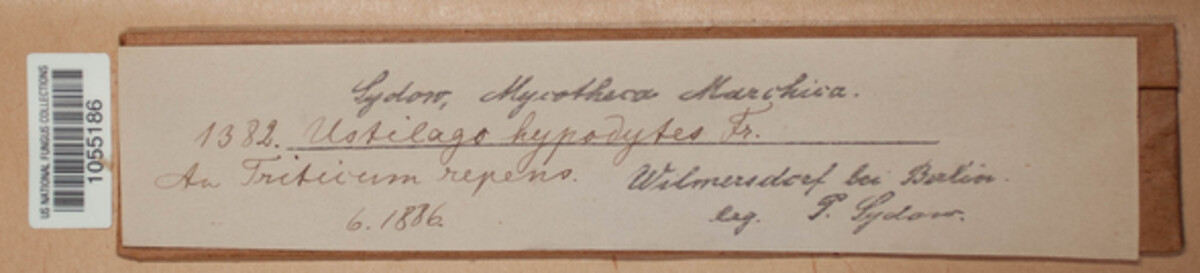 US NATIONAL FUNGUS COLLECTIONS
1055186
Sydow, Mycotheca Marchica.
1382. Ustilago hypodytes Fr.
An Triticum repens. Wilmersdorf bei Berlin.
6. 1886. leg. P. Sydow.